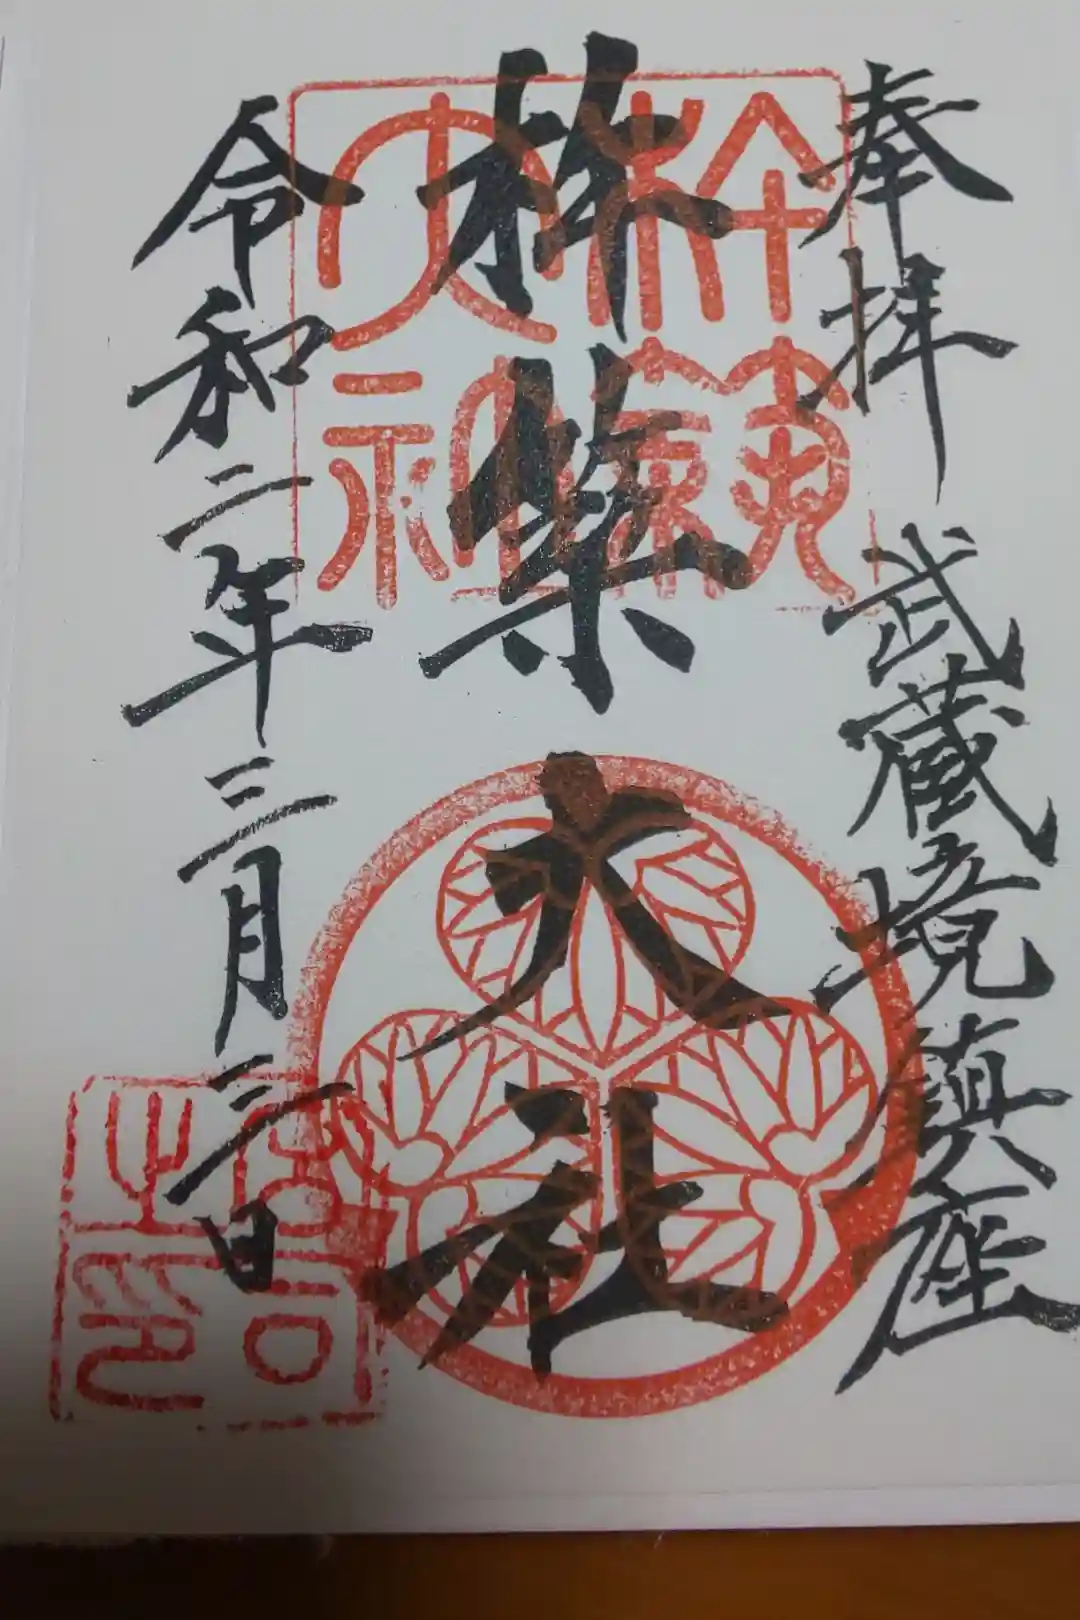 奉拝 武蔵境鎮座
杵築大社
令和二年三月三日
杵築
大社
宮司
之印